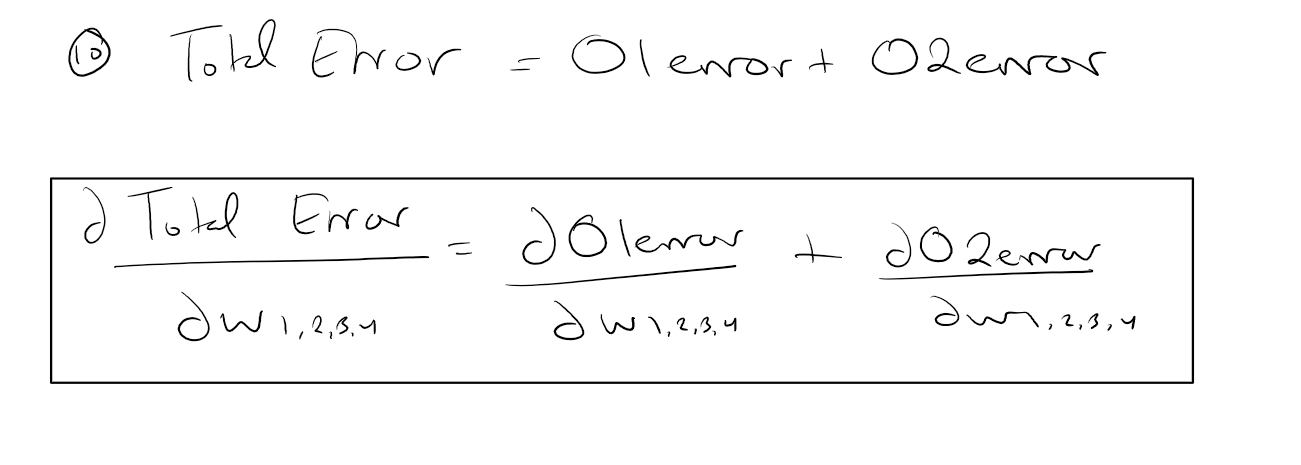 ⑩ Total Error = O1error + O2error
∂ Total Error / ∂w1,2,3,4 = ∂O1error / ∂w1,2,3,4 + ∂O2error / ∂w1,2,3,4